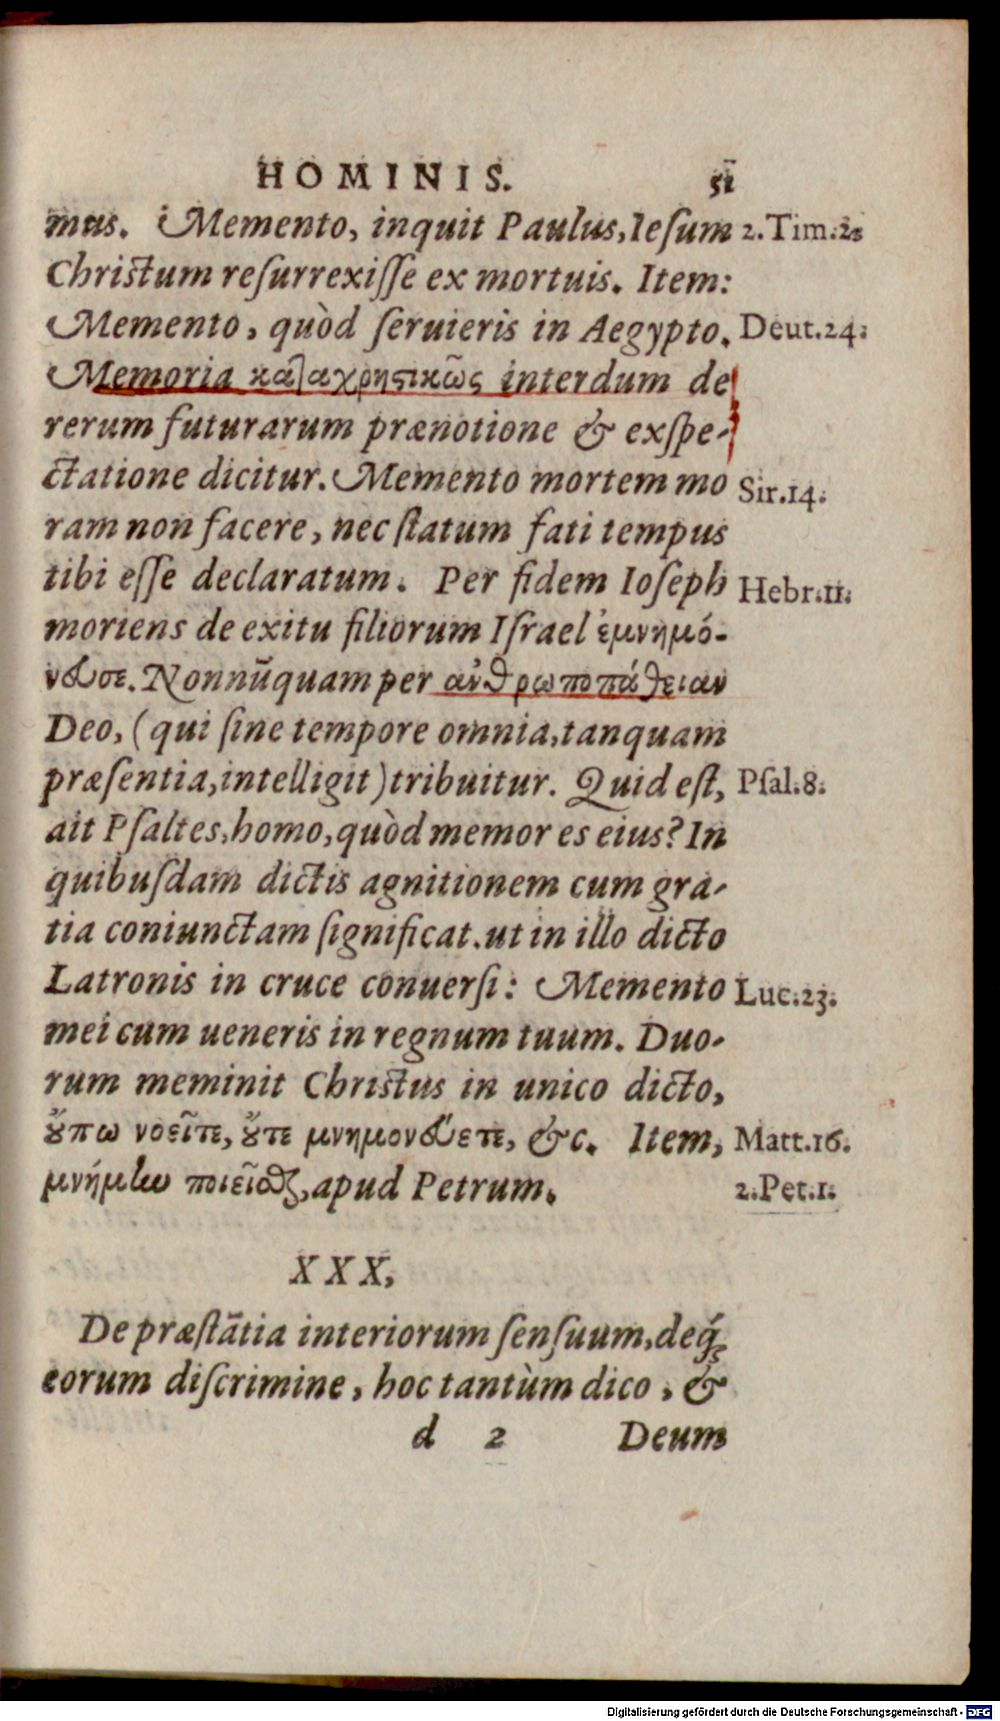 HOMINIS. 51
mus. Memento, inquit Paulus, Iesum 2.Tim.2.
Christum resurrexisse ex mortuis. Item:
Memento, quòd seruieris in Aegypto. Deut.24.
Memoria καταχρηστικῶς interdum de
rerum futurarum prænotione & exspe-
ctatione dicitur. Memento mortem mo Sir.14.
ram non facere, nec statum fati tempus
tibi esse declaratum. Per fidem Ioseph Hebr.11.
moriens de exitu filiorum Israel ἐμνημό-
νευσε. Nonnūquam per ἀνθρωποπάθειαν
Deo, (qui sine tempore omnia, tanquam
præsentia, intelligit) tribuitur. Quid est, Psal.8.
ait Psaltes, homo, quòd memor es eius? In
quibusdam dictis agnitionem cum gra-
tia coniunctam significat. ut in illo dicto
Latronis in cruce conuersi: Memento Luc.23.
mei cum ueneris in regnum tuum. Duo-
rum meminit Christus in unico dicto,
ὄυπω νοεῖτε, ὄυτε μνημονεύετε, &c. Item, Matt.16.
μνήμην ποιεῖσθαι, apud Petrum. 2.Pet.1.
XXX,
De præstātia interiorum sensuum, deq́ꝫ
eorum discrimine, hoc tantùm dico, &
d 2 Deum
Digitalisierung gefördert durch die Deutsche Forschungsgemeinschaft - DFG